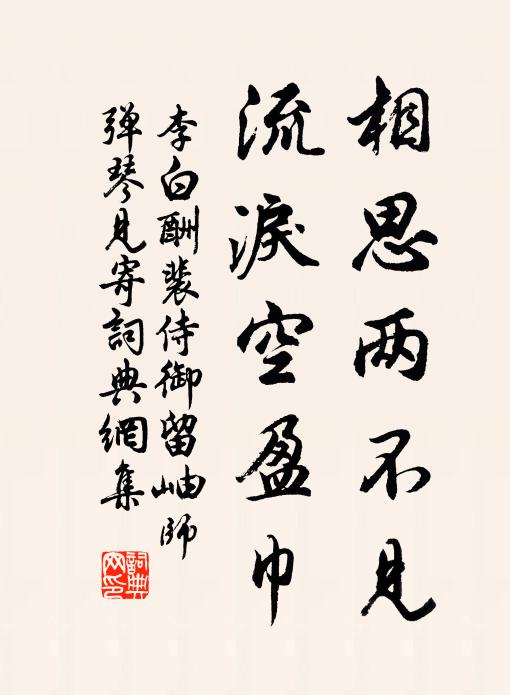 相思两不見
流淚空盈巾
李白酬裴侍御留岫師
弹琴見寄詞典網集
詞典
网印